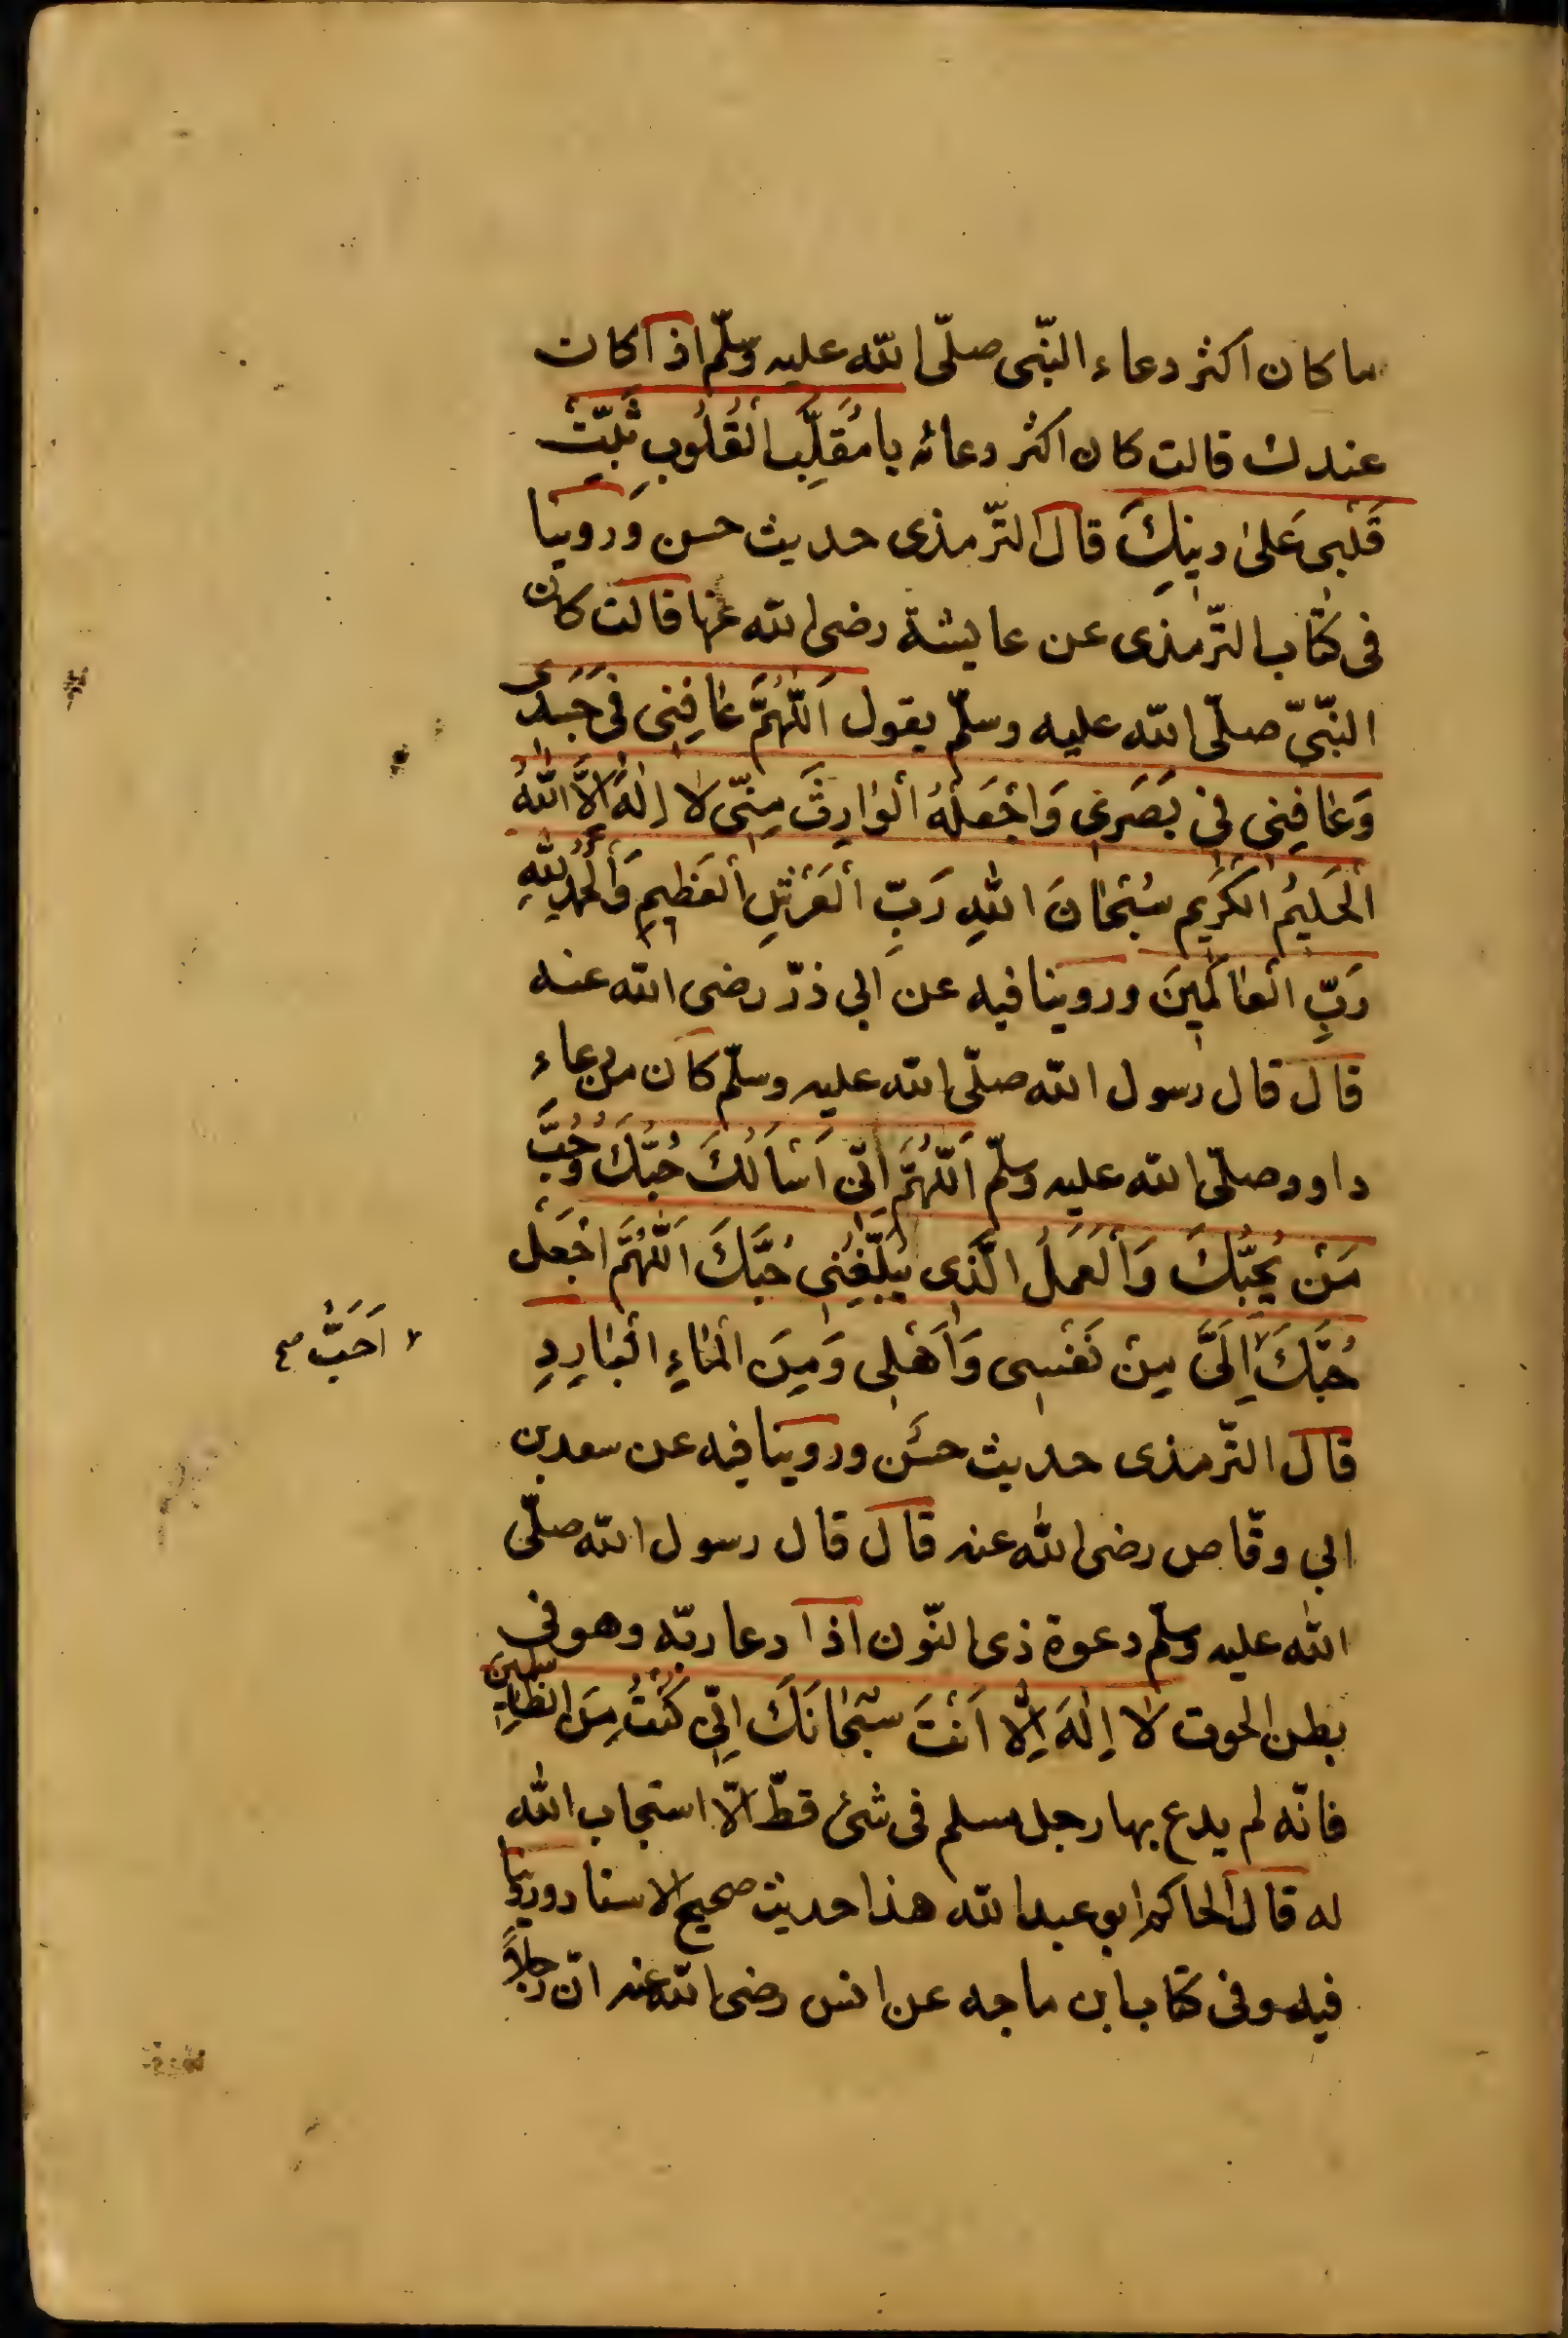 ما كان اكثر دعاء النّبى صلّى الله عليه وسلّم اذا كان
عندك قالت كان اكثر دعائه يا مُقَلِّبَ الْقُلُوبِ ثَبِّتْ
قَلْبِى عَلىٰ دِينِكَ قال التّرمذى حديث حسن وروينا
فى كتاب التّرمذى عن عايشة رضى الله عنها قالت كان
النّبىّ صلّى الله عليه وسلّم يقول اَللّٰهُمَّ عَافِنِى فى جَسَدِى
وَعَافِنِى فِى بَصَرِى وَاجْعَلْهُ الْوَارِثَ مِنِّى لا اِلٰهَ اِلَّا اللّٰهُ
الْحَلِيمُ الْكَرِيم سُبْحَانَ اللّٰهِ رَبِّ الْعَرْشِ الْعَظِيمِ وَالْحَمْدُ لِلّٰهِ
رَبِّ الْعَالَمِينَ وروينا فيه عن ابى ذرّ رضى الله عنه
قال قال رسول الله صلّى الله عليه وسلّم كان من دعاء
داود صلّى الله عليه وسلّم اَللّٰهُمَّ اِنِّى اَسْأَلُكَ حُبَّكَ وَحُبَّ
مَنْ يُحِبُّكَ وَالْعَمَلَ الَّذِى يُبَلِّغُنِى حُبَّكَ اَللّٰهُمَّ اجْعَلْ
حُبَّكَ اِلَىَّ مِنْ نَفْسِى وَاَهْلِى وَمِنَ الْمَاءِ الْبَارِدِ
اَحَبَّ صح
قال التّرمذى حديث حسن وروينا فيه عن سعد بن
ابى وقّاص رضى الله عنه قال قال رسول الله صلّى
الله عليه وسلّم دعوة ذى النّون اذا دعا ربّه وهو فى
بطن الحوت لا اِلٰهَ اِلَّا اَنْتَ سُبْحَانَكَ اِنِّى كُنْتُ مِنَ الظَّالِمِينَ
فانّه لم يدع بها رجل مسلم فى شئ قطّ الّا استجاب الله
له قال الحاكم ابو عبد الله هذا حديث صحيح الاسناد وروينا
فيه وفى كتاب ابن ماجه عن انس رضى الله عنه انّ رجلاً